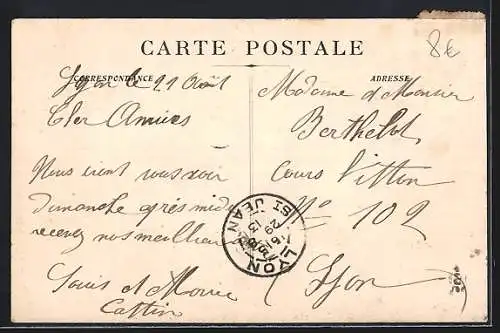 8€
CARTE POSTALE
CORRESPONDANCE
ADRESSE
Lyon le 29 Août
Cher Amies
Nous iront vous voir
dimanche après midi
recevez nos meilleurs
Louis et Marie
Cattin
Madame et Monsieur
Berthelot
Cours Vitton
N° 102
Lyon
LYON
ST JEAN